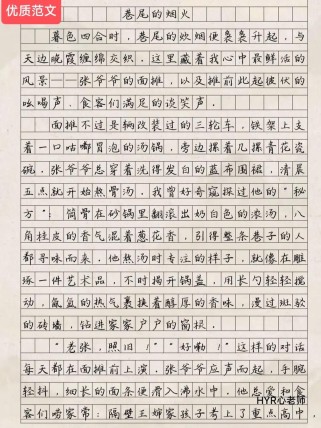 优质范文
巷尾的烟火
暮色四合时，巷尾的炊烟便袅袅升起，与
天边晚霞缠绵交织。这里藏着我心中最鲜活的
风景——张爷爷的面摊，以及摊前此起彼伏的
吆喝声、食客们满足的谈笑声。
面摊不过是辆改装过的三轮车，铁架上支
着一口咕嘟冒泡的汤锅，旁边摞着几摞青花瓷
碗。张爷爷总穿着洗得发白的蓝布围裙，清晨
五点就开始熬骨汤。我曾好奇窥探过他的“秘
方”：筒骨在砂锅里翻滚出奶白色的浓汤，八
角桂皮的香气混着葱花香，引得整条巷子的人
都寻味而来。他熬汤时专注的样子，就像在雕
琢一件艺术品，不时揭开锅盖，用长勺轻轻搅
动，氤氲的热气裹挟着醇厚的香味，漫过斑驳
的砖墙，钻进家家户户的窗棂。
“老张，照旧！”“好嘞！”这样的对话
每天都在面摊前上演。张爷爷应声而起，手腕
轻抖，细长的面条便滑入沸水中。他总爱和食
客们唠家常：隔壁王婶家孩子考上了重点高中，
HYR心老师